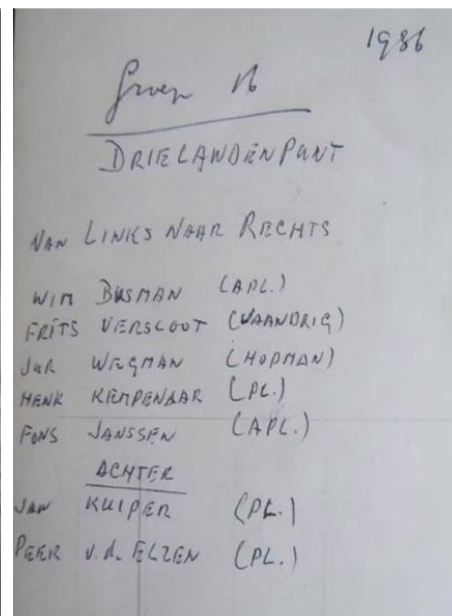 1986
Groep 16
DRIELANDENPUNT
VAN LINKS NAAR RECHTS
WIM BUSMAN (APL.)
FRITS VERSLOOT (VAANDRIG)
JUR WEGMAN (HOPMAN)
HENK KEMPENAAR (PL.)
FONS JANSSEN (APL.)
ACHTER
JAN KUIPER (PL.)
PEER v.d. ELZEN (PL.)